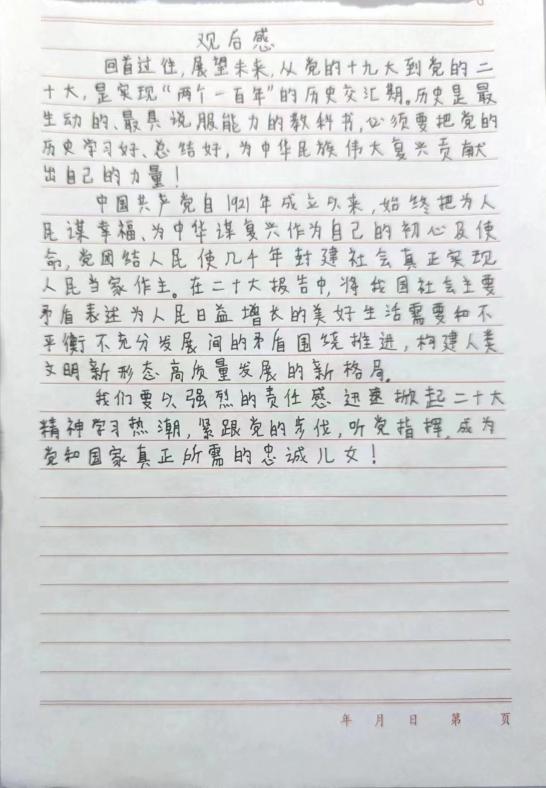 观后感
回首过往,展望未来,从党的十九大到党的二
十大,是实现“两个一百年”的历史交汇期。历史是最
生动的、最具说服能力的教科书,必须要把党的
历史学习好、总结好,为中华民族伟大复兴贡献
出自己的力量!
中国共产党自1921年成立以来,始终把为人
民谋幸福、为中华谋复兴作为自己的初心及使
命,党团结人民使几千年封建社会真正实现
人民当家作主。在二十大报告中,将我国社会主要
矛盾表述为人民日益增长的美好生活需要和不
平衡不充分发展间的矛盾围绕推进,构建人类
文明新形态高质量发展的新格局。
我们要以强烈的责任感迅速掀起二十大
精神学习热潮,紧跟党的步伐,听党指挥,成为
党和国家真正所需的忠诚儿女!
年 月 日 第 页